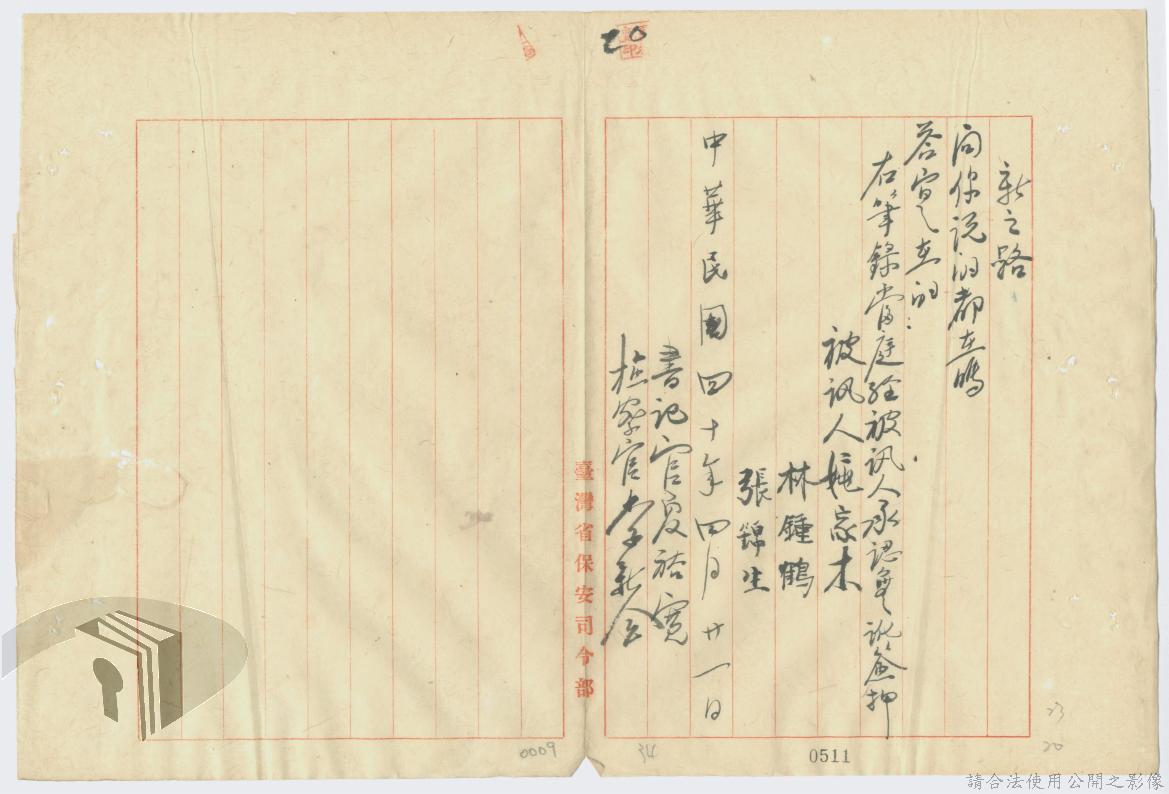 20
新之路
问你說的都在嗎
答實在的
右筆錄當庭經被訊人承認無訛簽押
被訊人姚家木
林鍾鶴
張錦生
中華民國四十年四月廿一日
書記官夏裕寬
檢察官李新
臺灣省保安司令部
0009
34
0511
23
20
請合法使用公開之影像